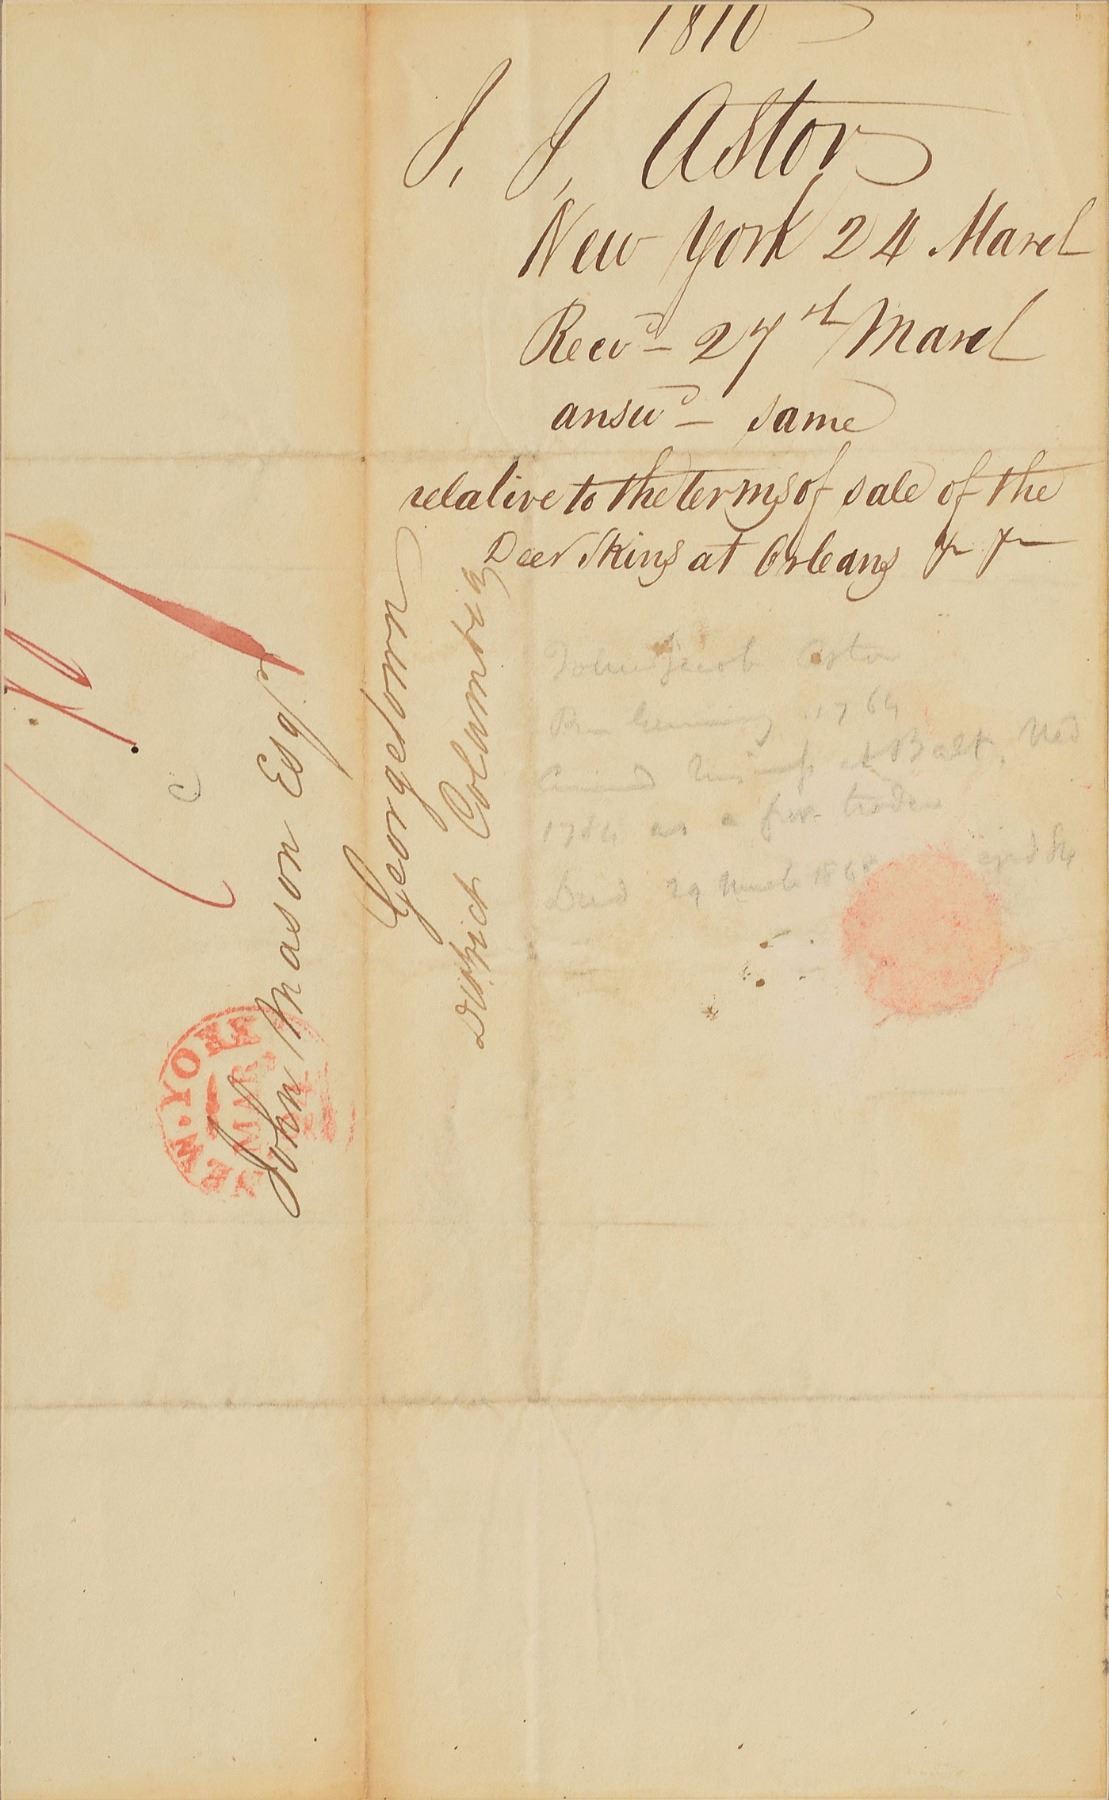 1810
J. J. Astor
New York 24 March
Recvd - 27th March
answd - same
relative to the terms of sale of the
Deer Skins at Orleans &c &c
John Mason Esqr
Georgetown
District Columbia
NEW-YORK
MAR
John Jacob Astor
Germany 1764
at Balt. Med
1784 as a fur trader
Died 29 March 1848 aged 84